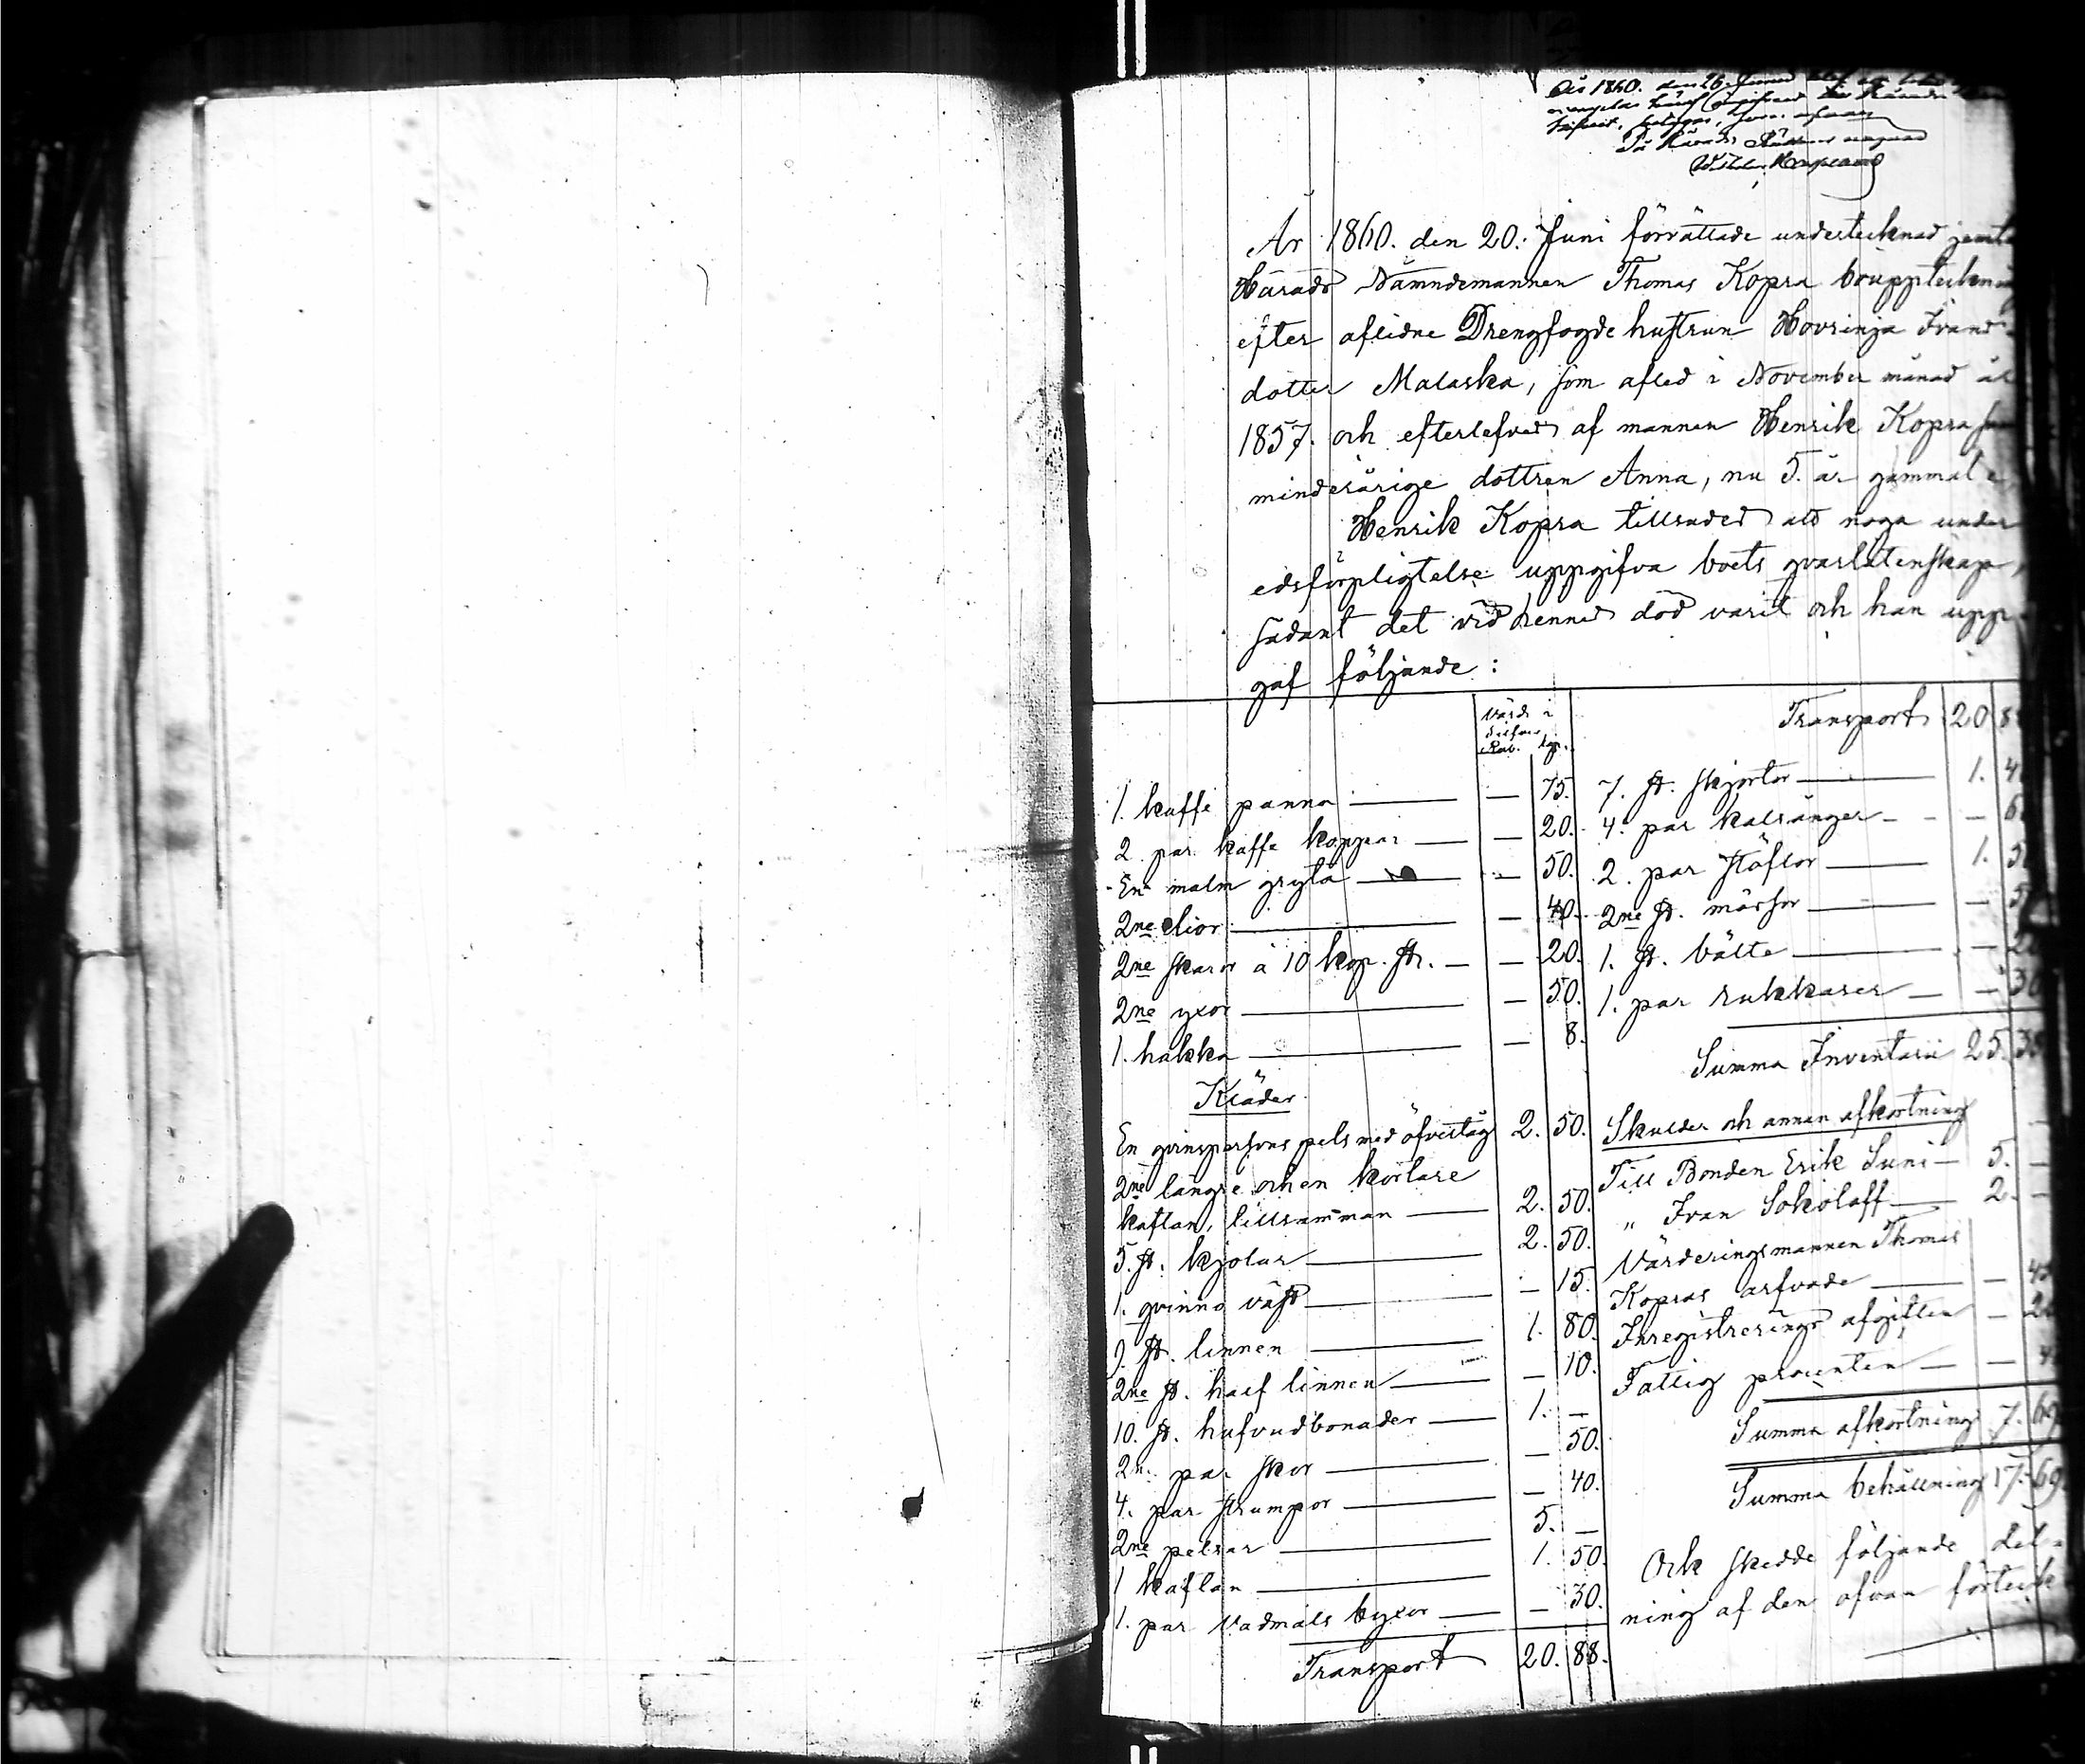 År 1860. den 20. Juni förrättade undertecknad jemte
Härads Nämndemannen Thomas Kopra bouppteckning
efter aflidne Drengfogde hustrun Hovrinja Ivans
dotter Malaska, som afled i November månad år
1857. och efterlefves af mannen Henrik Kopra
minderårige dottren Anna, nu 5. år gammal
Henrik Kopra tillsades att noga under
edsförpligtelse uppgifva boets qvarlåtenskap,
sådant det vid hennes död varit och han upp-
gaf följande:
Värde i
Silfver
Rub. kop.
1. kaffe panna — 75.
2 par kaffe koppar — 20.
En malm gryta — 50.
2ne lior — 40.
2ne skaror à 10 kop. st. — 20.
2ne yxor — 50.
1. hakka — 8.
Kläder
En qvinspersons pels med öfvertåg 2. 50.
2ne längre och en kortare
kaftan, tillsamman 2. 50.
5. st. kjolar 2. 50.
1. qvinno väst — 15.
9. st. linnen 1. 80.
2ne st. half linnen — 10.
10. st. hufvudbonader 1. —
2ne par skor — 50.
4. par strumpor — 40.
2ne pelsar 5. —
1 kaftan 1. 50.
1. par vadmals byxor — 30.
Transport 20. 88.
Transport 20 88
7. st. skjortor 1. 4
4. par kalsånger — 6
2. par stöflor 1. 5
2ne st. mössor — 5
1. st. bälte — 2
1. par rukkaser — 30
Summa Inventarii 25. 38
Skulder och annan afkortning
Till Bonden Erik Suni 5. —
" Ivan Sokoloff 2. —
Värderingsmannen Thomas
Kopras arfvode —
Inregistrerings afgiften —
Fattig procenten —
Summa afkortning 7. 69
Summa behållning 17. 69.
Och skedde följande del-
ning af den ofvan förteck-